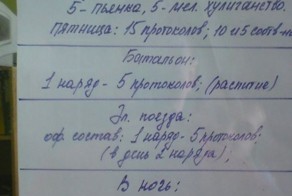 5 - пьянка, 5 - мел. хулиганство.
Пятница: 15 протоколов; 10 и 5 соотв-
Батальон:
1 наряд - 5 протоколов; (распитие)
Эл. поезда:
оф. состав: 1 наряд - 5 протоколов;
(в день 2 наряда);
В ночь: